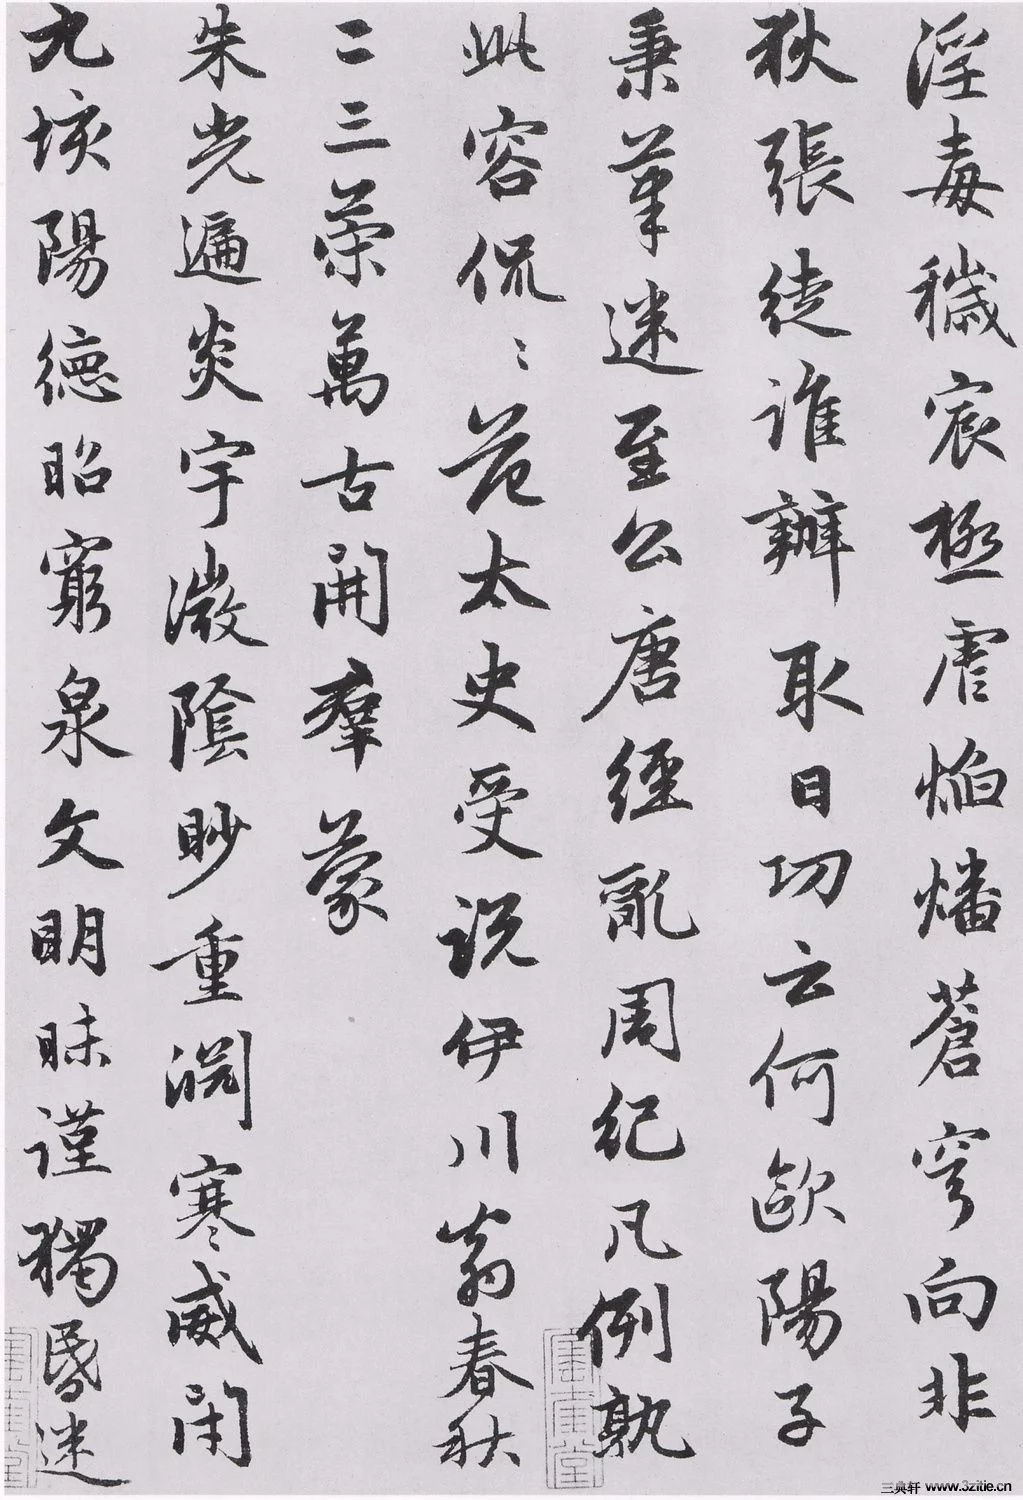 淫毒穢宸極虐焰燔蒼穹向非
狄張徒誰辦取日功云何歐陽子
秉筆迷至公唐經亂周紀凡例孰
此容侃〻范太史受説伊川翁春秋
二三策萬古開羣蒙
朱光遍炎宇微陰眇重淵寒威閉
九垓陽德昭窮泉文明昧謹獨昏迷
三典轩 www.3zitie.cn